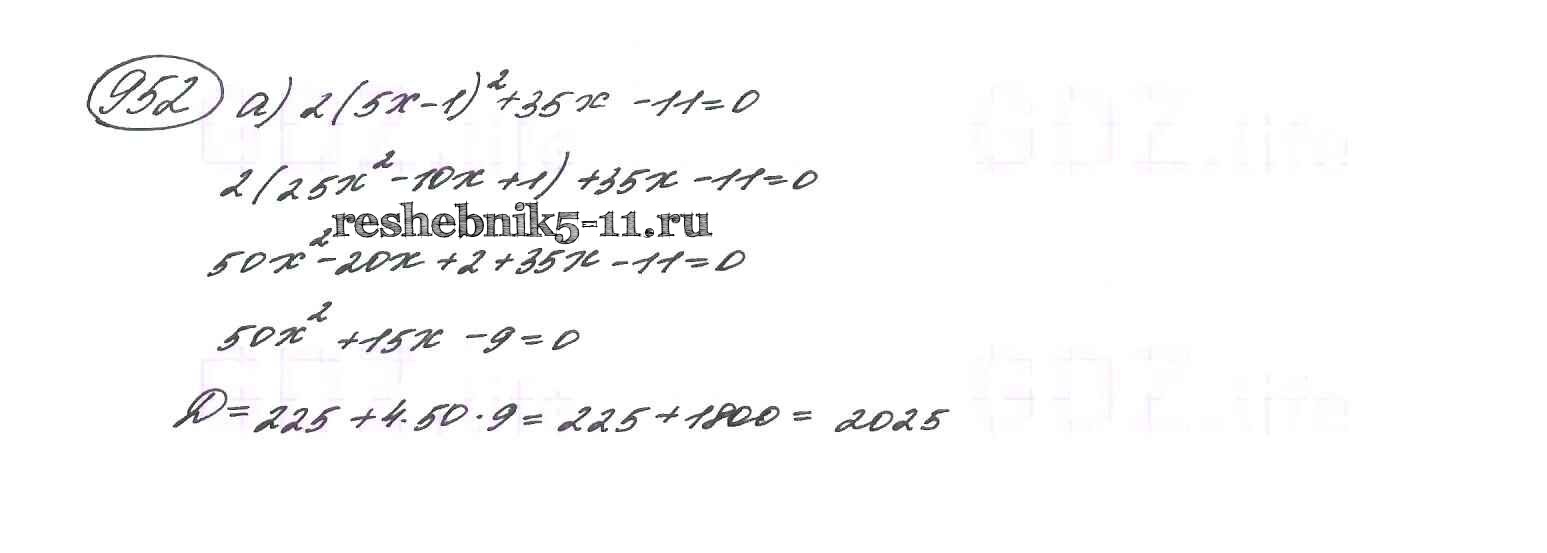 952 а) 2(5x-1)²+35x -11=0
2(25x²-10x+1)+35x-11=0
reshebnik5-11.ru
50x²-20x+2+35x-11=0
50x²+15x-9=0
D=225+4·50·9=225+1800= 2025
GDZ.life
GDZ.life
GDZ.life
GDZ.life